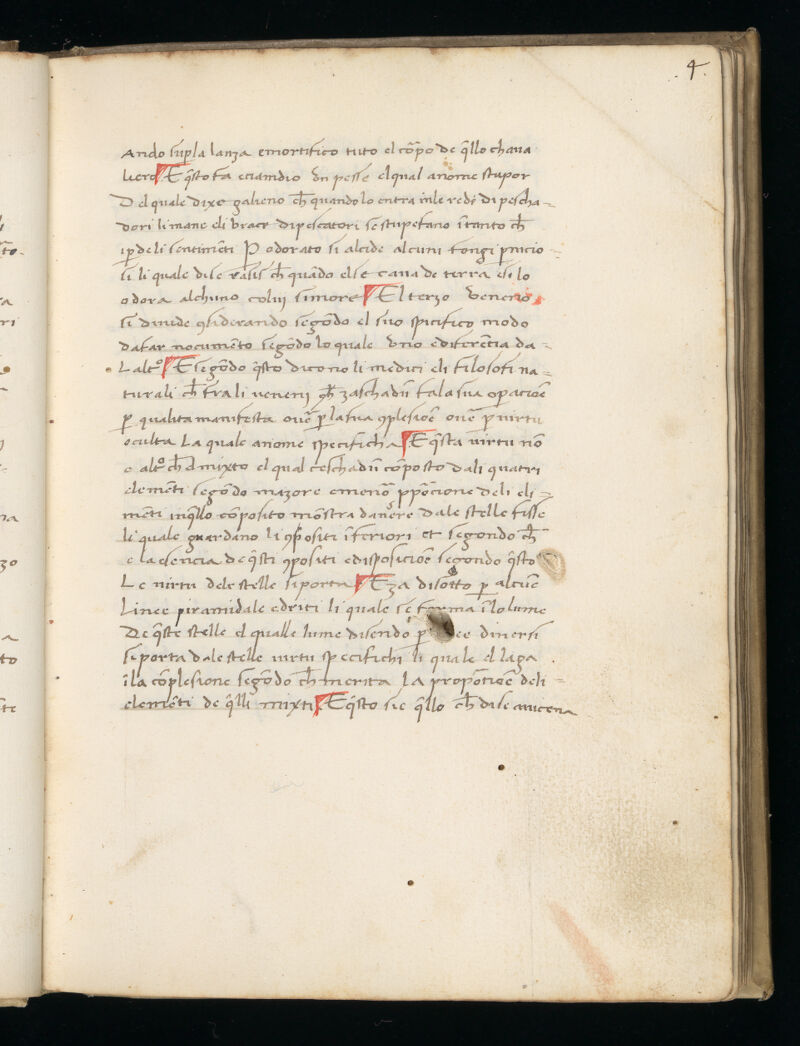 .4.
Ando sup la lanza emortifico tuto el cōpo de q̄llo chaua
liero E q̄sto fa eciamdio vn pesse elqual anome stupor
Del quale dixe galieno ch̄ quando lo entra inle rede di pescha-
dori li mane eli bracr dipescatori se stupefano ītanto ch̄
ip̱de li sentimēti P odorato si alcide alcuni fongi p̱nicio-
si li quale dise rasis ch̄ quādo else caua de terra esi lo
odora alchuno colui simore El terzo veneno
si diuide ꝯsiderando segōdo el suo spicifico modo
dafar nocumēto segōdo lo quale vno ediferēcia da-
L altº E segōdo q̄sto dicono li medici eli filosofi na-
turali ch̄ fra li venenij ch̄ zaschadū fa la sua opacioē
p̱ qualita manifesta ouē p̱ la sua ꝯplesioē ouē p̱ uirtu
oculta La quale anome specificha E q̄sta uirtu nō
e altº ch̄ Amixto el qual ceschadū cōposto dali quatri
elemēti segōdo mazore emenō p̱pōcione deli eli-
mēti inq̄llo cōposito mōstra dauere dale stelle fisse
li quale guardano li ꝯpositi īferiori et segondo ch̄
e la esencia de q̄sti ꝯpositi edisposicioē segondo q̄sto
Le uirtu dele stelle siporta E za disotto p̱ alcūe
Linee piramidale edriti li quale se forma ī lo lume
De q̄ste stelle el qualle lume disendo p̱ ee diuersi
siporta dale stelle uirtu specifichi li quale el lapa
ī la cōplesione segōdo ch̄ merita La propōcioē deli-
elemēti de q̄lli mixti E q̄sto sie q̄llo ch̄ dise auicena